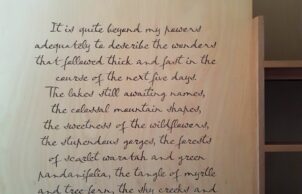 It is quite beyond my powers
adequately to describe the wonders
that followed thick and fast in the
course of the next five days.
The lakes still awaiting names,
the colossal mountain shapes,
the sweetness of the wildflowers,
the stupendous gorges, the forests
of scarlet waratah and green
pandanifolia, the tangle of myrtle
and tree-fern, the shy creeks and